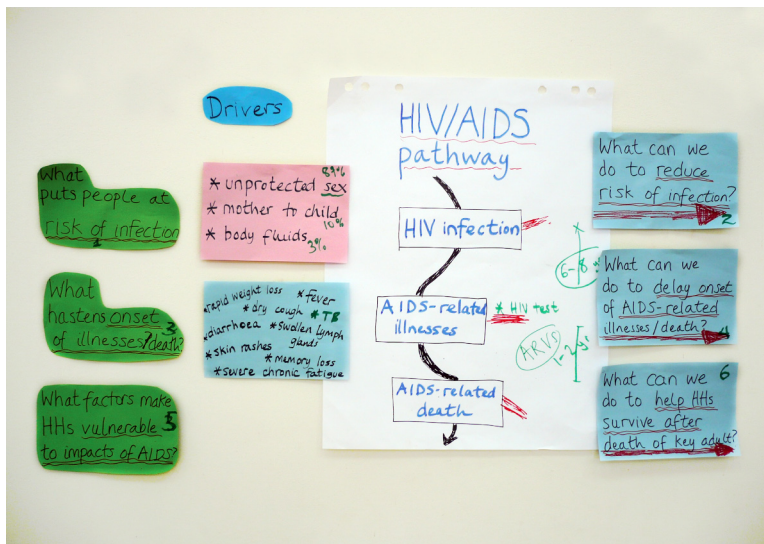 Drivers
What
puts people at
risk of infection
1
What
hastens onset 3
of illnesses/death?
What factors make
HHs vulnerable 5
to impacts of AIDS?
89%
* unprotected sex
* mother to child
10%
* body fluids
3%
rapid weight loss * fever
* dry cough * TB
diarrhoea * Swollen lymph
glands
* skin rashes
* memory loss
* severe chronic fatigue
HIV/AIDS
pathway
HIV infection
AIDS-related
illnesses
AIDS-related
death
x
6-8
* HIV test
ARVS
1-2
What can we
do to reduce
risk of infection?
2
What can we
do to delay onset
of AIDS-related
illnesses/death?
4
What can we 6
do to help HHs
survive after
death of key adult?